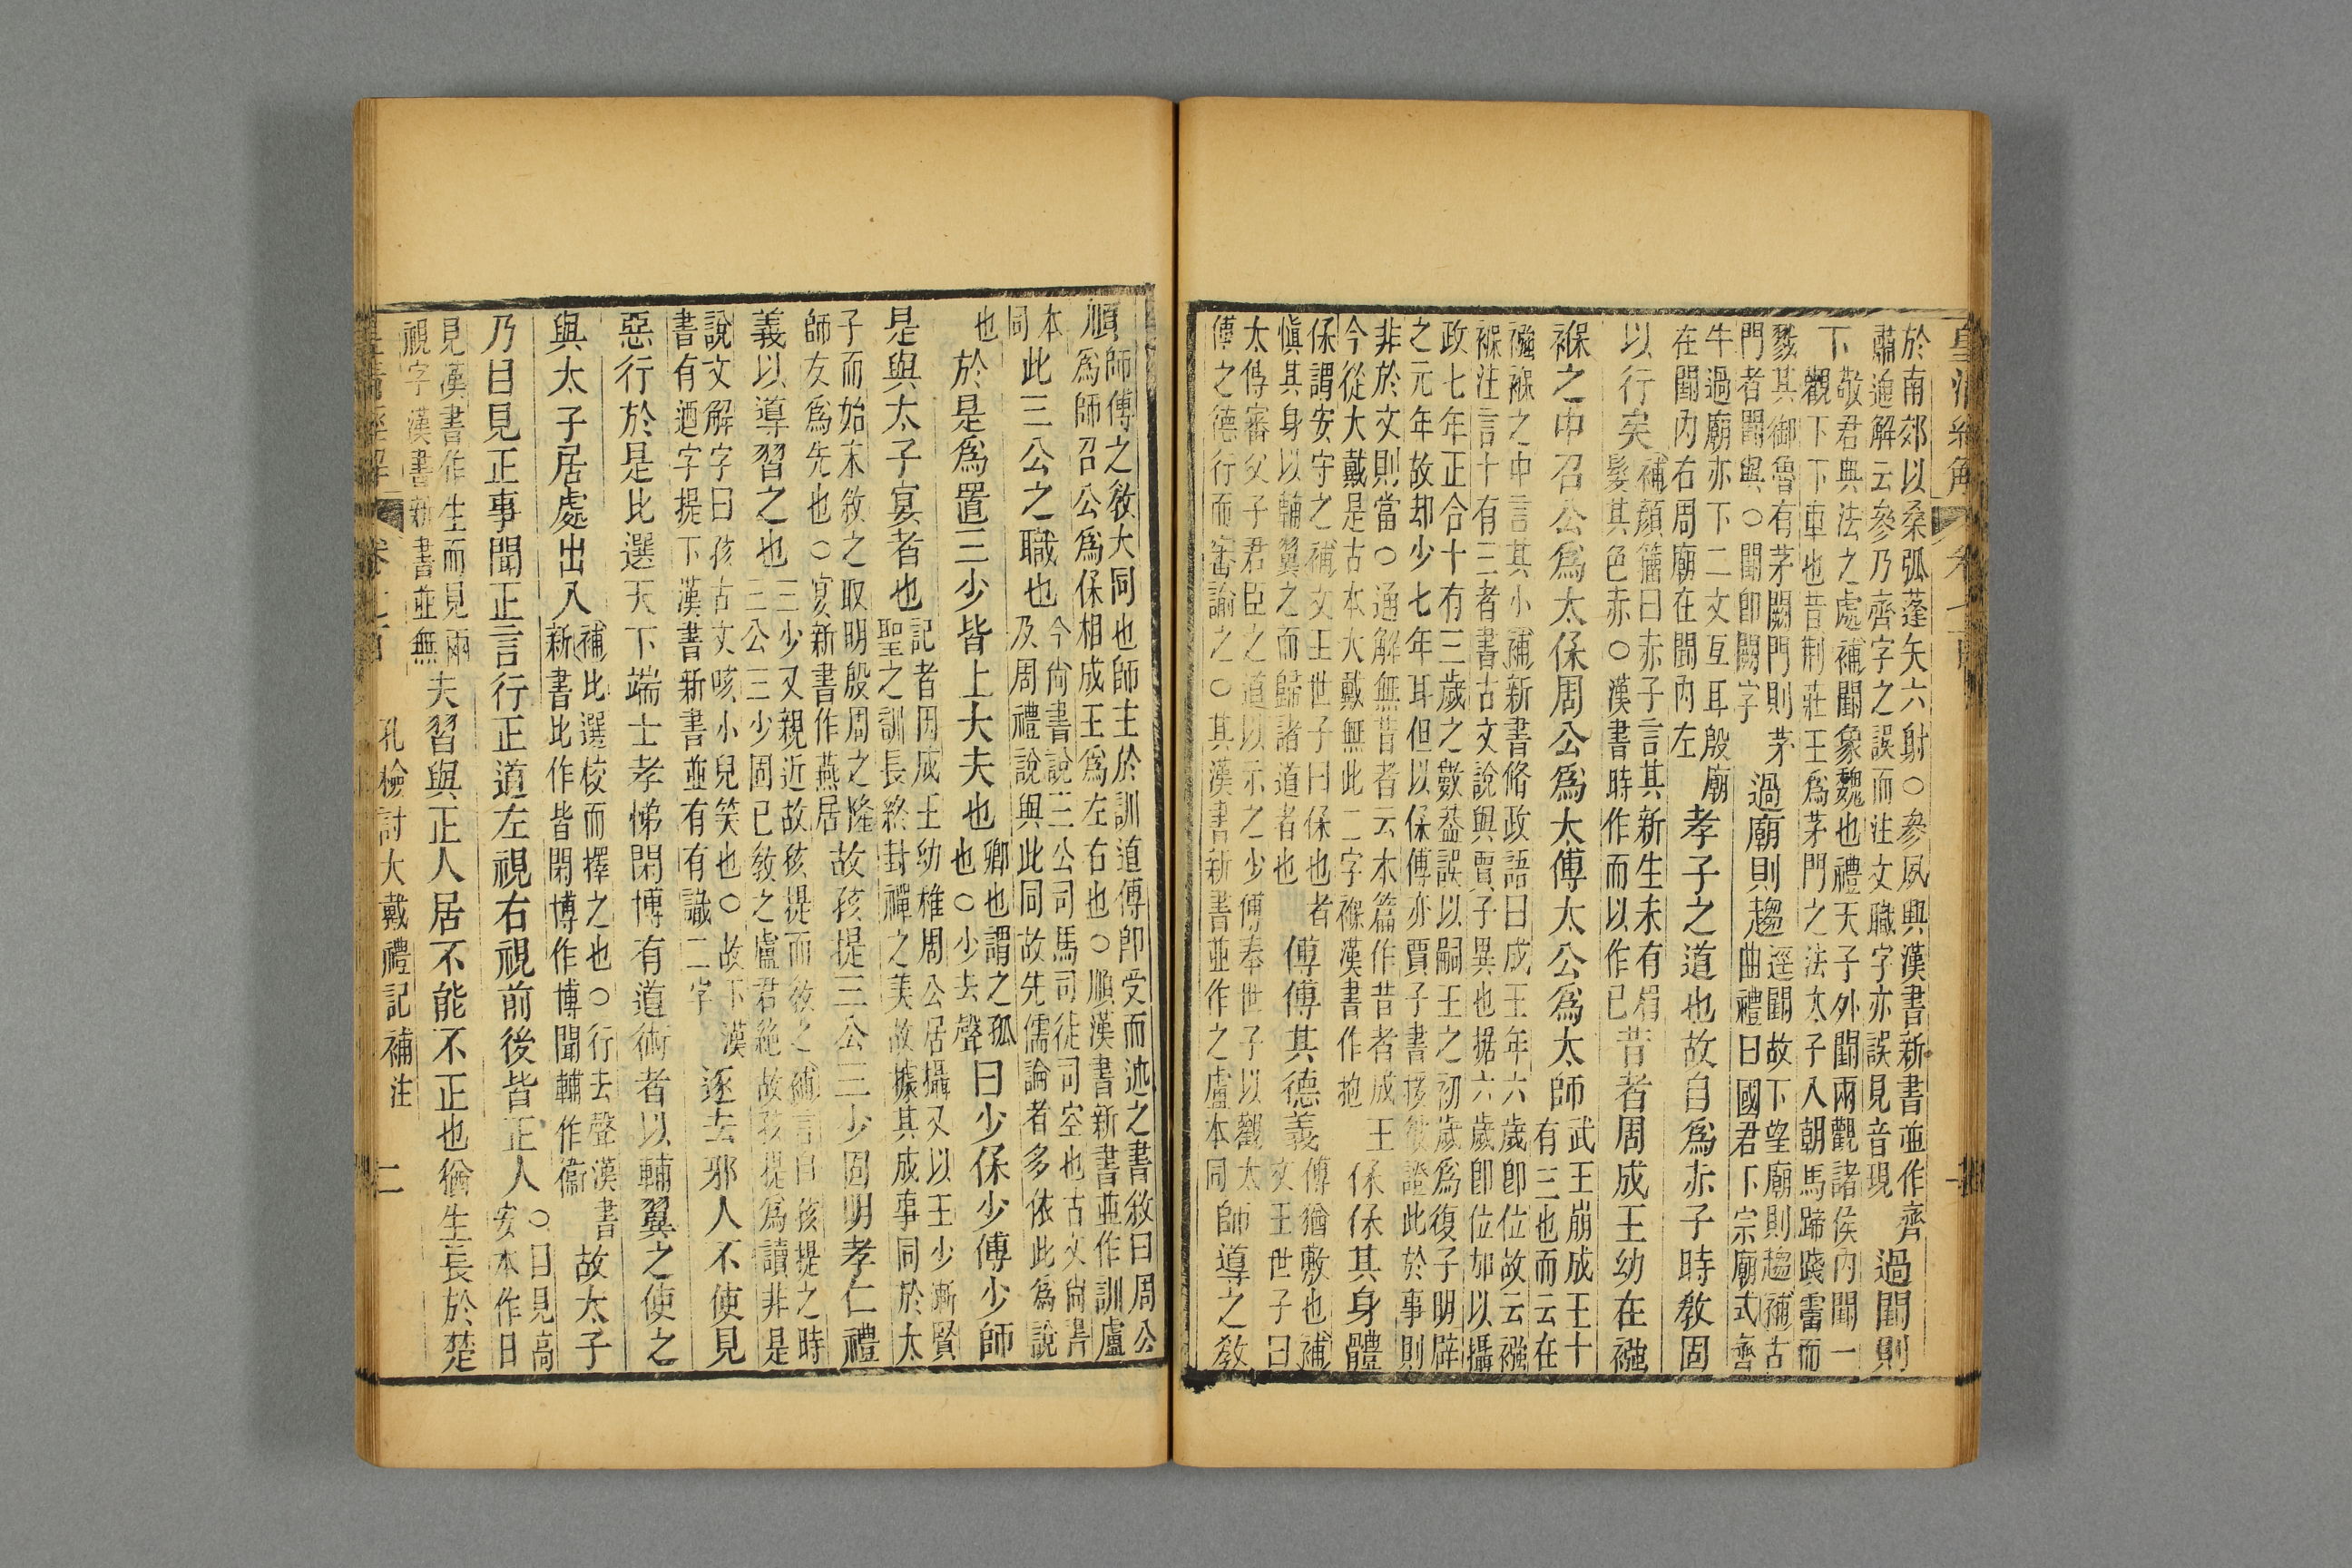 皇清經解
於南郊以桑弧蓬矢六射○參夙興漢書新書並作齊
肅通解云參乃齊字之誤而注文職字亦誤見音現
過闕則
下
敬君典法之處補闕象魏也禮天子外闕兩觀諸侯內闕一
觀下下車也昔荆莊王爲茅門之法太子入朝馬蹄踐霤而
戮其御魯有茅闕門則茅
門者闕與○闕卽闕字
過廟則趨
逕闕故下望廟則趨補古
曲禮曰國君下宗廟式齊
牛過廟亦下二文互耳殷廟
在闈內右周廟在闈內左
孝子之道也故自爲赤子時敎固
以行矣
補顏籀曰赤子言其新生未有眉
髮其色赤○漢書時作而以作已
昔者周成王幼在襁
褓之中召公爲太保周公爲太傅太公爲太師
武王崩成王十
有三也而云在
襁褓之中言其小補新書脩政語曰成王年六歲卽位故云襁
褓注言十有三者書古文說與賈子異也据六歲卽位加以攝
政七年正合十有三歲之數葢誤以嗣王之初歲爲復子明辟
之元年故却少七年耳但以保傅亦賈子書援彼證此於事則
非於文則當○通解無昔者云本篇作昔者成王
今從大戴是古本大戴無此二字褓漢書作抱
保保其身體
保謂安守之補文王世子曰保也者
愼其身以輔翼之而歸諸道者也
傅傅其德義
傅猶敷也補
文王世子曰
太傅審父子君臣之道以示之少傅奉世子以觀太
傅之德行而審諭之○其漢書新書並作之盧本同
師導之敎
順
師傅之敎大同也師主於訓道傅卽受而述之書敘曰周公
爲師召公爲保相成王爲左右也○順漢書新書並作訓盧
本
同
此三公之職也
今尙書說三公司馬司徒司空也古文尙書
及周禮說與此同故先儒論者多依此爲說
也
於是爲置三少皆上大夫也
卿也謂之孤
也○少去聲
曰少保少傅少師
是與太子宴者也
記者因成王幼稚周公居攝又以王少漸賢
聖之訓長終封禪之美故據其成事同於太
子而始末敘之取明殷周之隆
師友爲先也○宴新書作燕居
故孩提三公三少固明孝仁禮
義以導習之也
三少又親近故孩提而敎之補言自孩提之時
三公三少固已敎之盧君絶故孩提爲讀非是
說文解字曰孩古文咳小兒笑也○故下漢
書有迺字提下漢書新書並有有識二字
逐去邪人不使見
惡行於是比選天下端士孝悌閑博有道術者以輔翼之使之
與太子居處出入
補比選校而擇之也○行去聲漢書
新書比作皆閑博作博聞輔作衞
故太子
乃目見正事聞正言行正道左視右視前後皆正人
○目見高
安本作日
見漢書作生而見兩
視字漢書新書並無
夫習與正人居不能不正也猶生長於楚
皇清經解 孔檢討大戴禮記補注 二